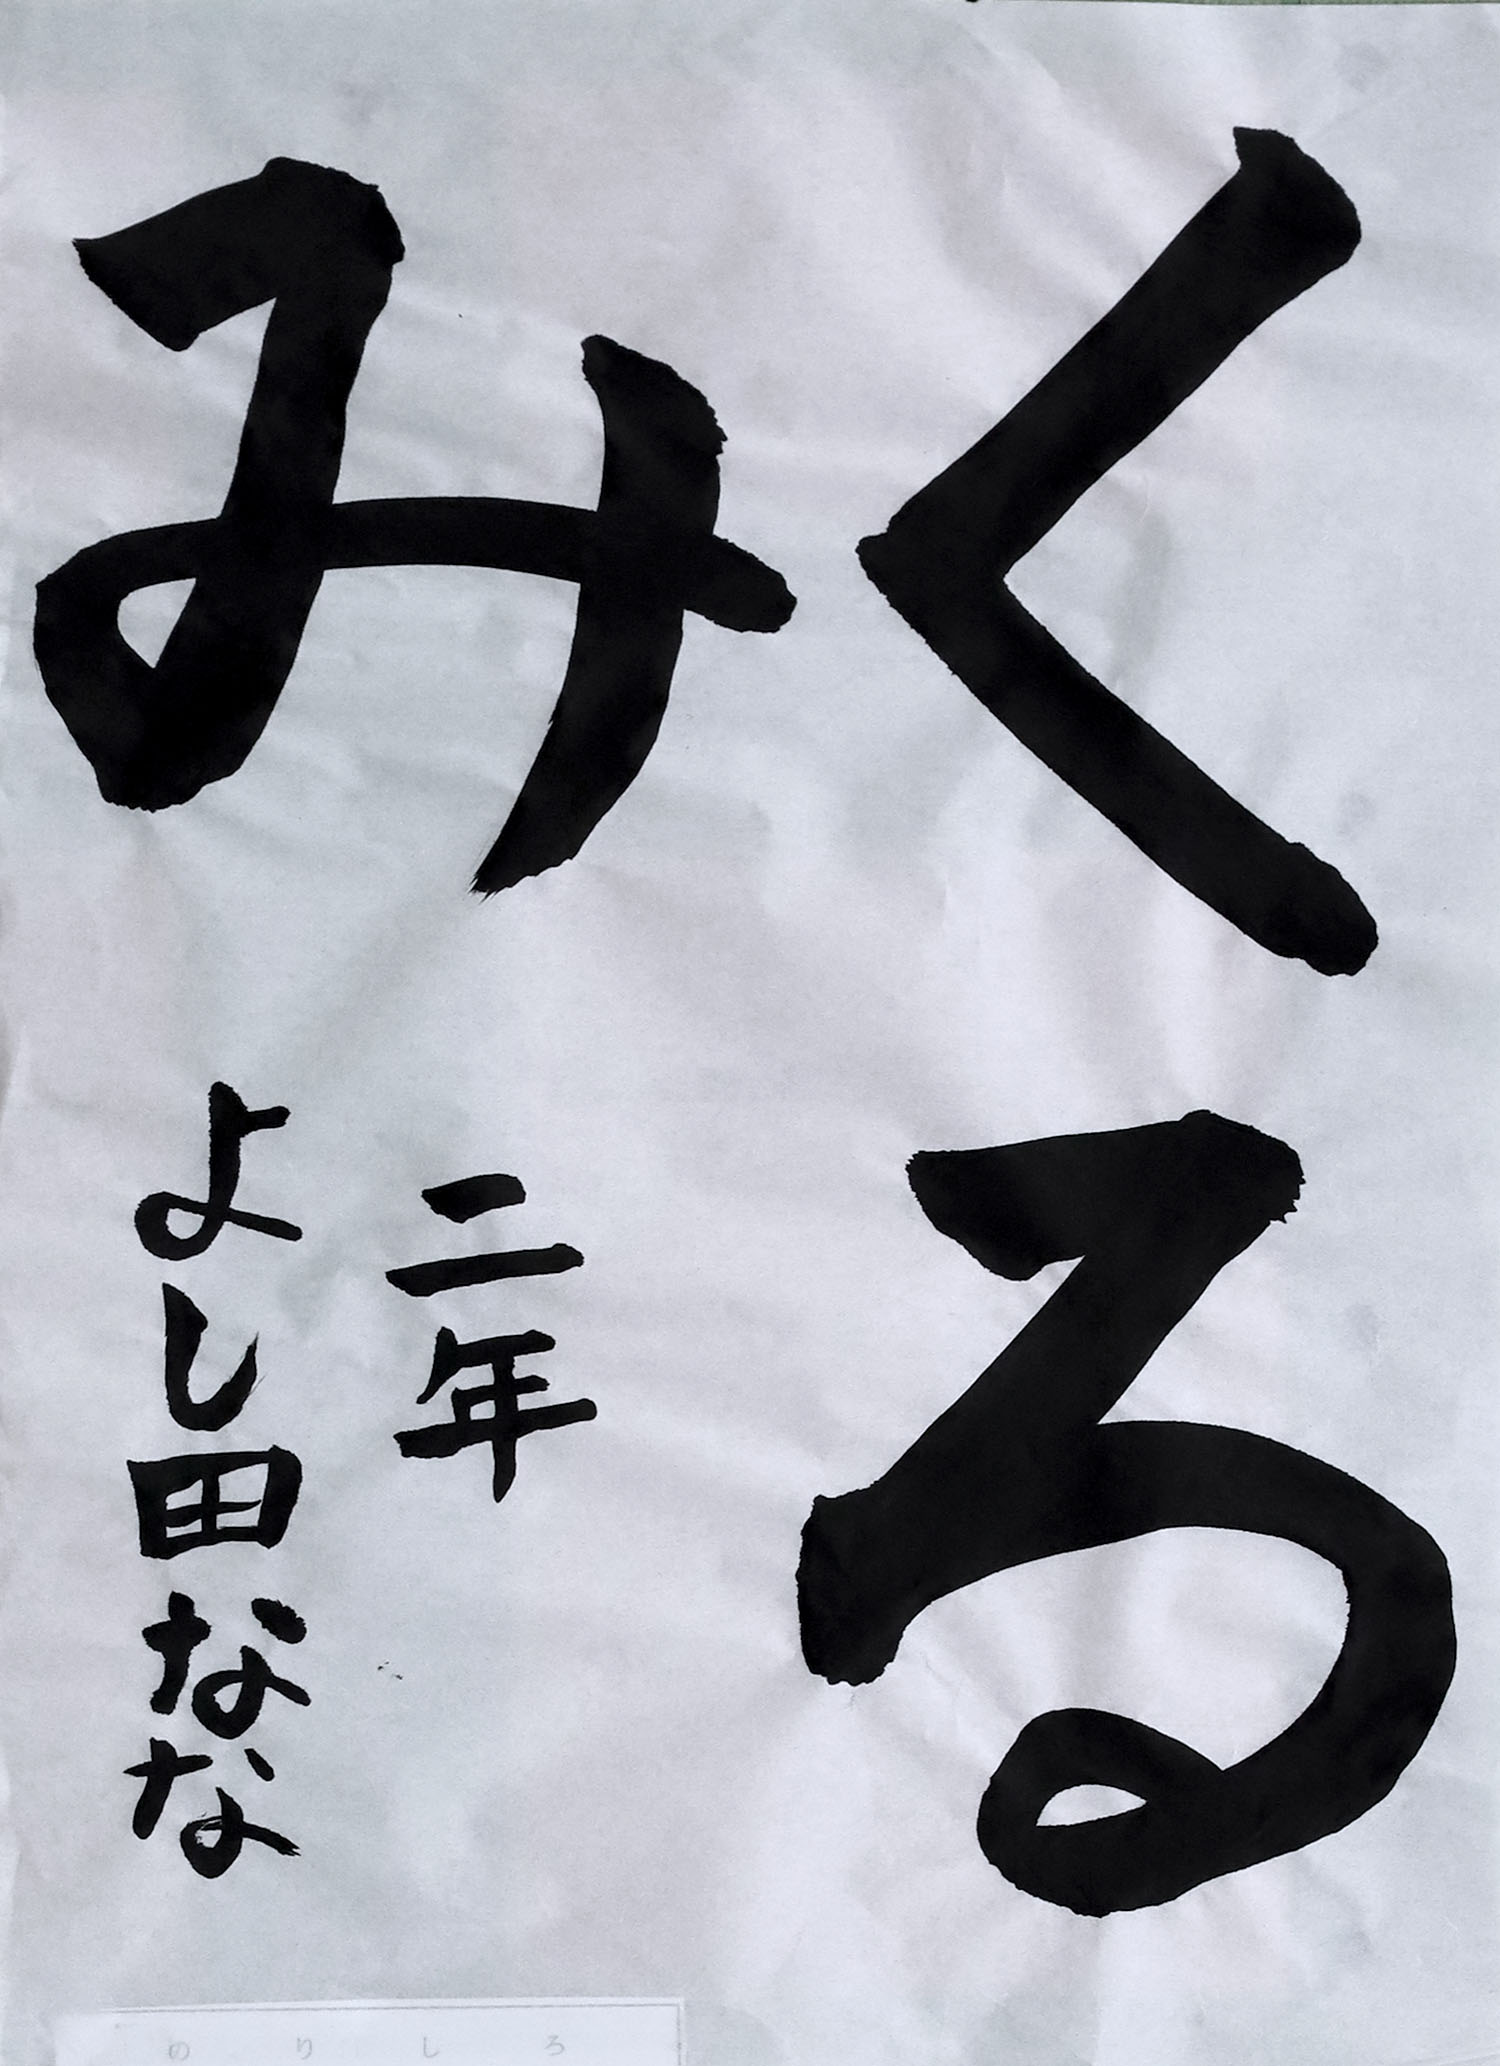 くる
み
二年
よし田なな
のりしろ